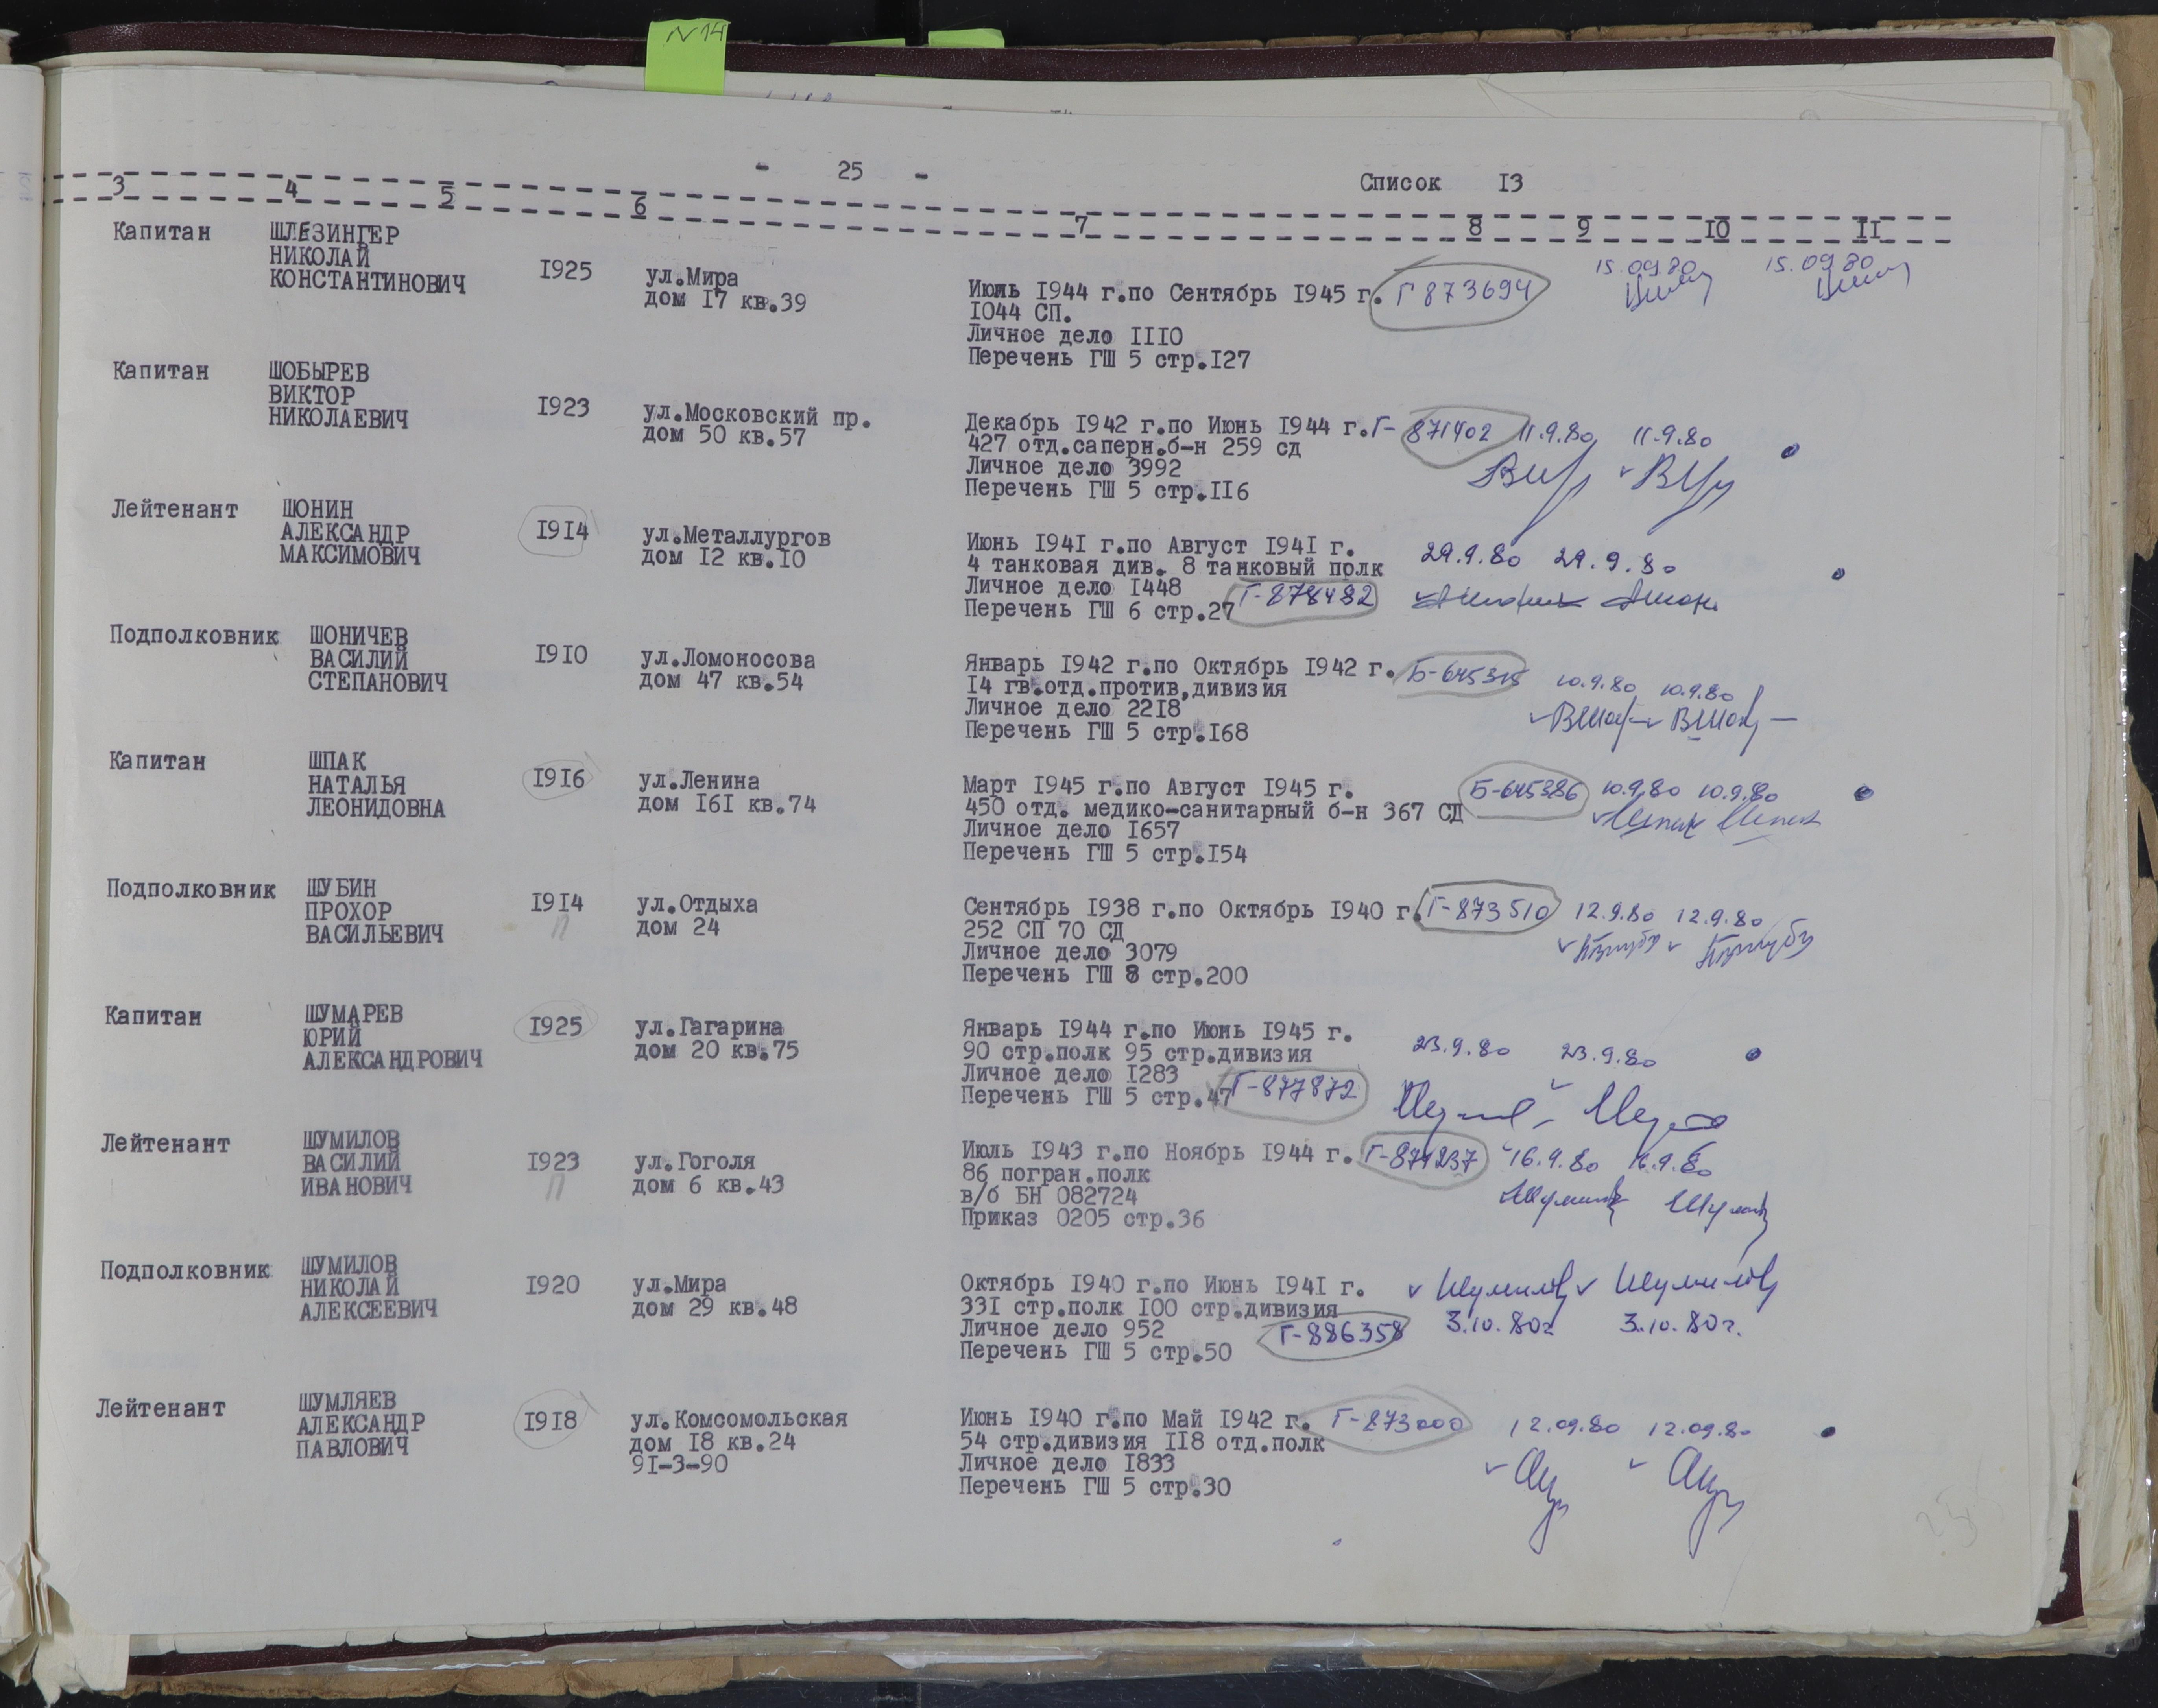 N14
- 25 -
Список 13
3 4 5 6 7 8 9 10 11
Капитан ШЛЕЗИНГЕР
НИКОЛАЙ
КОНСТАНТИНОВИЧ 1925 ул.Мира
дом 17 кв.39
15.09.80 15.09.80
Июль 1944 г.по Сентябрь 1945 г. Г 873694
1044 СП.
Личное дело 1110
Перечень ГШ 5 стр.127
Капитан ШОБЫРЕВ
ВИКТОР
НИКОЛАЕВИЧ 1923 ул.Московский пр.
дом 50 кв.57
Декабрь 1942 г.по Июнь 1944 г. Г- 871402 11.9.80 11.9.80
427 отд.саперн.б-н 259 сд
Личное дело 3992
Перечень ГШ 5 стр.116
Лейтенант ШОНИН
АЛЕКСАНДР
МАКСИМОВИЧ 1914 ул.Металлургов
дом 12 кв.10
Июнь 1941 г.по Август 1941 г. 29.9.80 29.9.80
4 танковая див. 8 танковый полк
Личное дело 1448
Перечень ГШ 6 стр.27 Г-878482
Подполковник ШОНИЧЕВ
ВАСИЛИЙ
СТЕПАНОВИЧ 1910 ул.Ломоносова
дом 47 кв.54
Январь 1942 г.по Октябрь 1942 г. 10.9.80 10.9.80
14 гв.отд.против,дивизия
Личное дело 2218
Перечень ГШ 5 стр.168
Капитан ШПАК
НАТАЛЬЯ
ЛЕОНИДОВНА 1916 ул.Ленина
дом 161 кв.74
Март 1945 г.по Август 1945 г. Б-645386 10.9.80 10.9.80
450 отд. медико-санитарный б-н 367 СД
Личное дело 1657
Перечень ГШ 5 стр.154
Подполковник ШУБИН
ПРОХОР
ВАСИЛЬЕВИЧ 1914 ул.Отдыха
дом 24
Сентябрь 1938 г.по Октябрь 1940 г. Г-873510 12.9.80 12.9.80
252 СП 70 СД
Личное дело 3079
Перечень ГШ 8 стр.200
Капитан ШУМАРЕВ
ЮРИЙ
АЛЕКСАНДРОВИЧ 1925 ул.Гагарина
дом 20 кв.75
Январь 1944 г.по Июнь 1945 г. 23.9.80 23.9.80
90 стр.полк 95 стр.дивизия
Личное дело 1283
Перечень ГШ 5 стр.47 Г-877872
Лейтенант ШУМИЛОВ
ВАСИЛИЙ
ИВАНОВИЧ 1923 ул.Гоголя
дом 6 кв.43
Июль 1943 г.по Ноябрь 1944 г. Г-874237 16.9.80 16.9.80
86 погран.полк
в/б БН 082724
Приказ 0205 стр.36
Подполковник ШУМИЛОВ
НИКОЛАЙ
АЛЕКСЕЕВИЧ 1920 ул.Мира
дом 29 кв.48
Октябрь 1940 г.по Июнь 1941 г. Шумилов Шумилов
331 стр.полк 100 стр.дивизия
Личное дело 952 Г-886358 3.10.80г. 3.10.80г.
Перечень ГШ 5 стр.50
Лейтенант ШУМЛЯЕВ
АЛЕКСАНДР
ПАВЛОВИЧ 1918 ул.Комсомольская
дом 18 кв.24
91-3-90
Июнь 1940 г.по Май 1942 г. Г-873000 12.09.80 12.09.80
54 стр.дивизия 118 отд.полк
Личное дело 1833
Перечень ГШ 5 стр.30